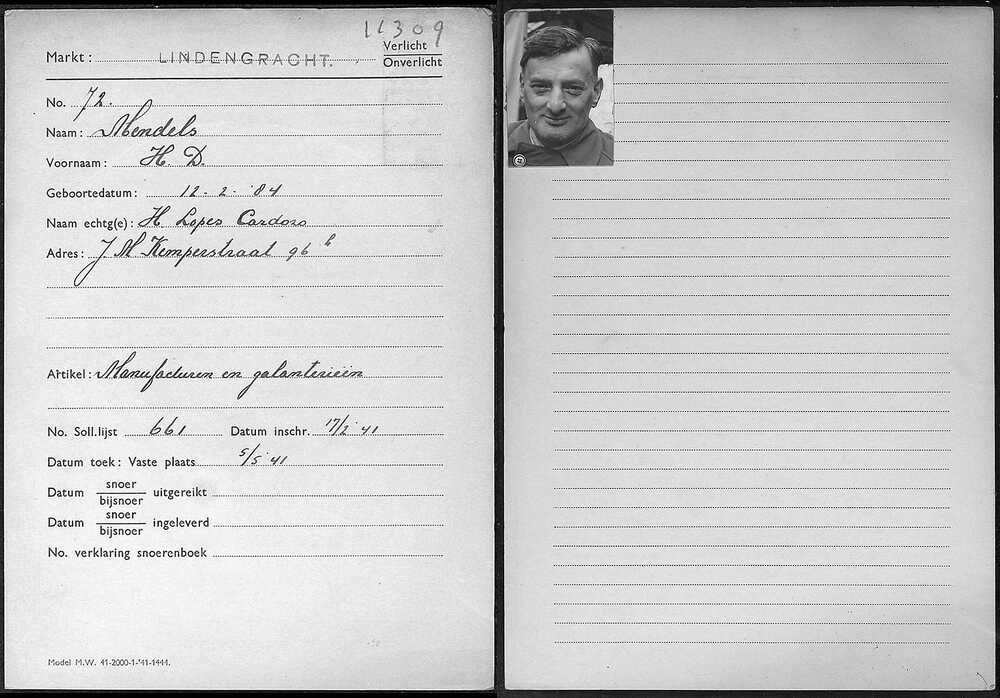 11309
Markt: LINDENGRACHT. Verlicht
Onverlicht
No. 72.
Naam: Mendels
Voornaam: H. D.
Geboortedatum: 12-2-'84
Naam echtg(e): H Lopes Cardoso
Adres: J M Kemperstraat 96 h
Artikel: Manufacturen en galanterieën
No. Soll.lijst 661 Datum inschr. 17/2 '41
Datum toek: Vaste plaats 5/5 '41
Datum snoer uitgereikt
bijsnoer
Datum snoer ingeleverd
bijsnoer
No. verklaring snoerenboek
Model M.W. 41-2000-1-'41-1444.